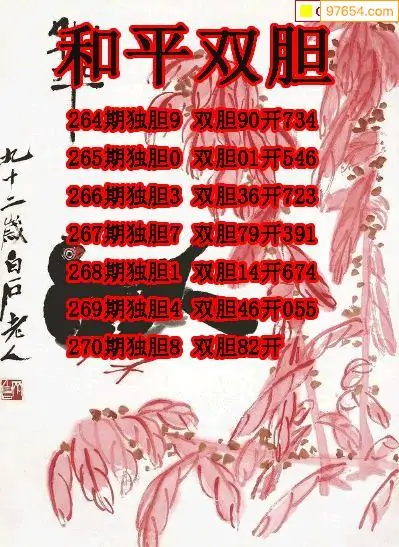 97654.com
和平双胆
264期独胆9 双胆90开734
265期独胆0 双胆01开546
266期独胆3 双胆36开723
267期独胆7 双胆79开391
268期独胆1 双胆14开674
269期独胆4 双胆46开055
270期独胆8 双胆82开
九十二岁白石老人